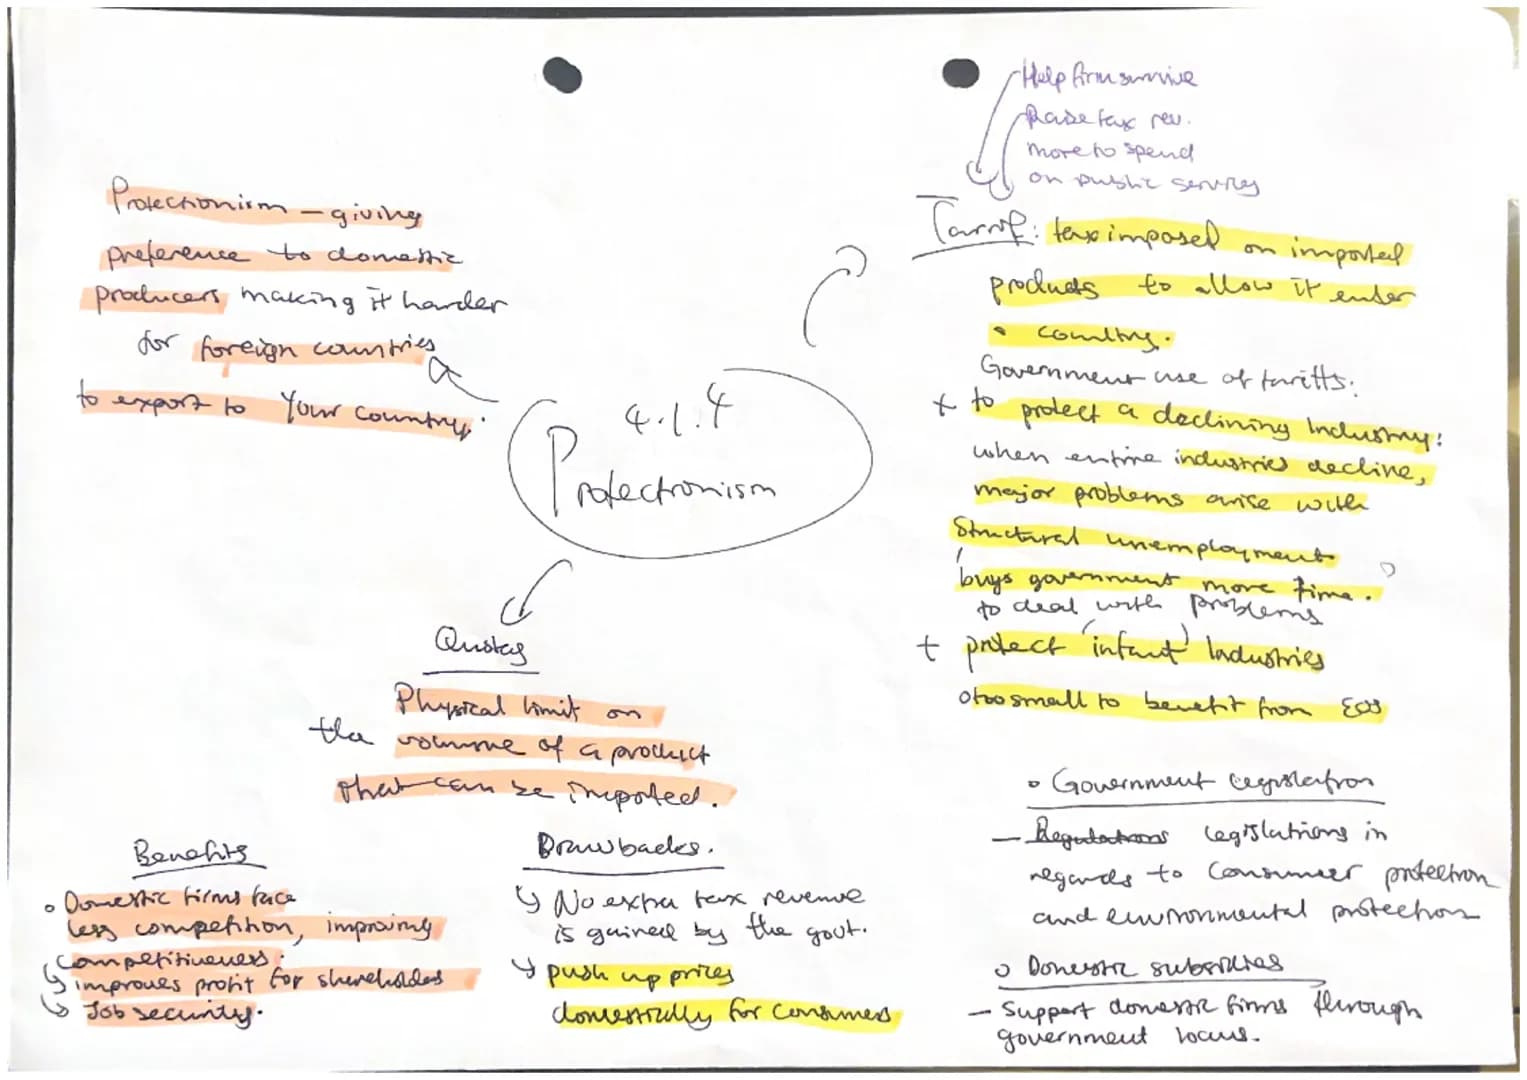 Help firm survive
Raise tax rev.
more to spend
on public services
Protectionism – giving
preference to domestic
producers making it harder
for foreign countries
to export to Your country.
4.1.4
Protectionism
Tarrif: tax imposed on imported
products to allow it enter
• country.
Government use of tariffs:
+ to protect a declining Industry:
when entire industries decline,
major problems arise with
Structural unemployment
buys government more time.
to deal with problems
+ protect 'infant' Industries
o too small to benefit from EOS
Quotas
Physical limit on
the volume of a product
that can be imported.
Benefits
• Domestic firms face
less competition, improving
competitiveness.
↳ improves profit for shareholders
↳ Job security.
Drawbacks.
↳ No extra tax revenue
is gained by the govt.
↳ push up prices
domestically for consumers
o Government legislation
– Regulations legislations in
regards to Consumer protection
and environmental protection
o Domestic subsidies
– Support domestic firms through
government